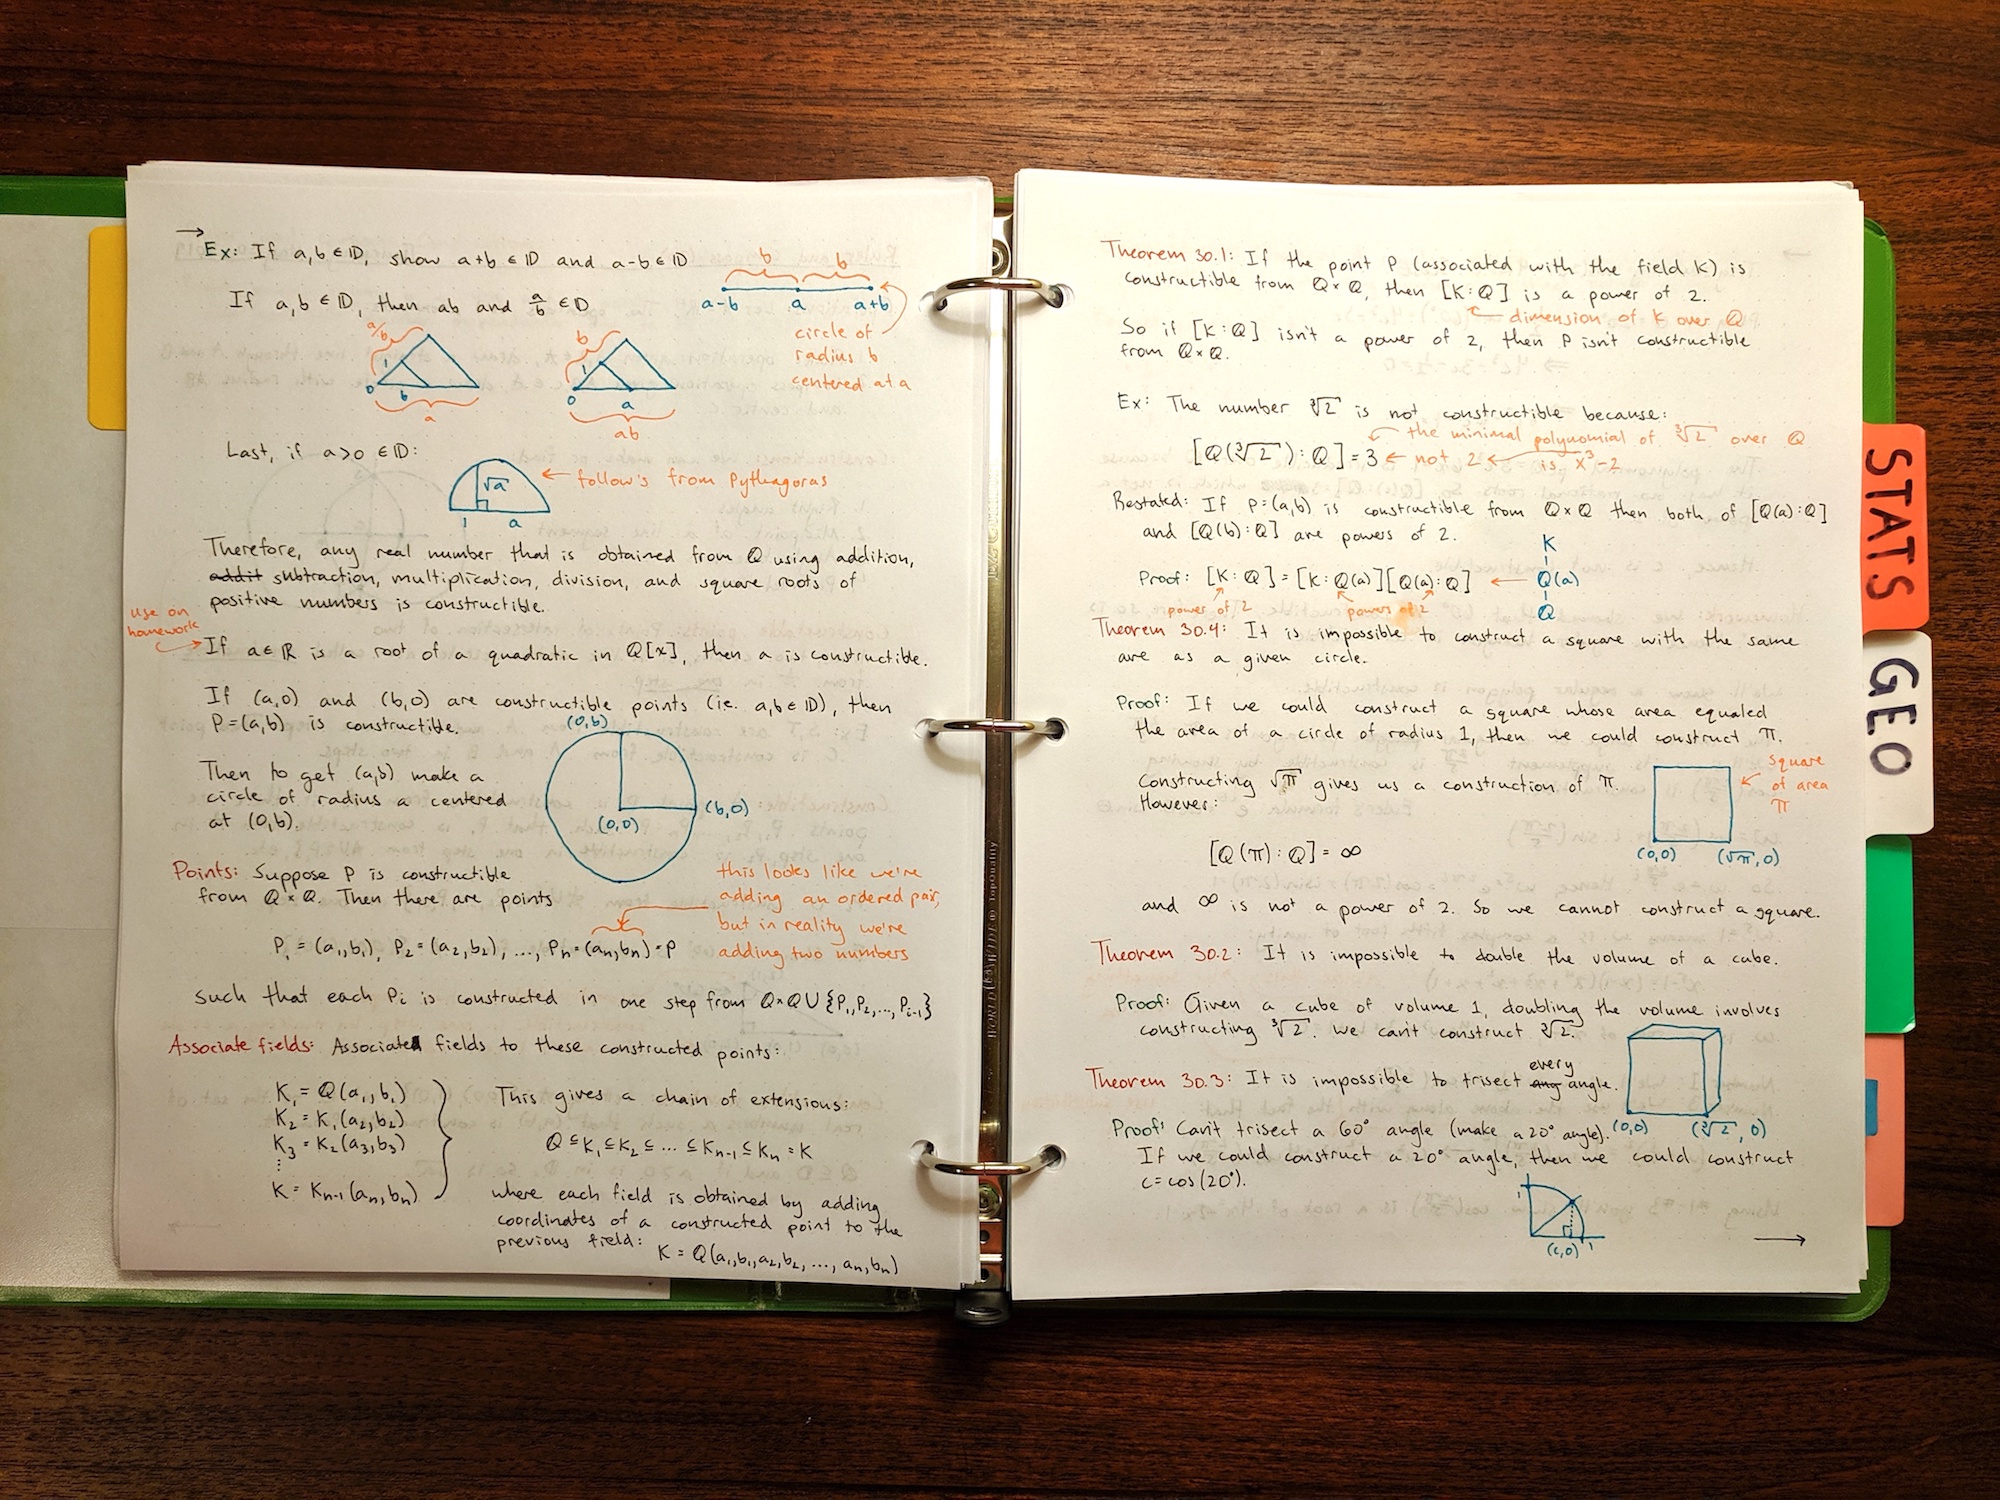 → Ex: If a,b ∈ D, show a+b ∈ D and a-b ∈ D
b b
a-b a a+b
If a,b ∈ D, then ab and a/b ∈ D
circle of
radius b
centered at a
a/b
1
0 b
a
b
1
0 a
ab
Last, if a>0 ∈ D:
√a
1 a
← follow's from Pythagoras
Therefore, any real number that is obtained from Q using addition,
addit subtraction, multiplication, division, and square roots of
positive numbers is constructible.
use on
homework
If a∈R is a root of a quadratic in Q[x], then a is constructible.
If (a,0) and (b,0) are constructible points (ie. a,b∈D), then
P=(a,b) is constructible.
(0,b)
(b,0)
(0,0)
Then to get (a,b) make a
circle of radius a centered
at (0,b).
Points: Suppose P is constructible
from Q×Q. Then there are points
this looks like we're
adding an ordered pair,
but in reality we're
adding two numbers
P₁ = (a₁,b₁), P₂ = (a₂,b₂), ..., Pₙ = (aₙ,bₙ) = P
such that each Pᵢ is constructed in one step from Q×Q ∪ {P₁,P₂,...,Pᵢ₋₁}
Associate fields: Associate fields to these constructed points:
K₁ = Q(a₁,b₁)
K₂ = K₁(a₂,b₂)
K₃ = K₂(a₃,b₃)
⋮
K = Kₙ₋₁(aₙ,bₙ)
This gives a chain of extensions:
Q ⊆ K₁ ⊆ K₂ ⊆ ... ⊆ Kₙ₋₁ ⊆ Kₙ = K
where each field is obtained by adding
coordinates of a constructed point to the
previous field:
K = Q(a₁,b₁,a₂,b₂, ..., aₙ,bₙ)
WORLD WIDE TopQuality
Theorem 30.1: If the point P (associated with the field K) is
constructible from Q×Q, then [K:Q] is a power of 2.
dimension of K over Q
So if [K:Q] isn't a power of 2, then P isn't constructible
from Q×Q.
Ex: The number ∛2 is not constructible because:
[Q(∛2):Q] = 3 ← not 2
the minimal polynomial of ∛2 over Q
is x³-2
Restated: If P=(a,b) is constructible from Q×Q then both of [Q(a):Q]
and [Q(b):Q] are powers of 2.
Proof: [K:Q] = [K:Q(a)][Q(a):Q] ←
power of 2 powers of 2
K
Q(a)
Q
Theorem 30.4: It is impossible to construct a square with the same
are as a given circle.
Proof: If we could construct a square whose area equaled
the area of a circle of radius 1, then we could construct π.
Constructing √π gives us a construction of π.
However:
square
of area
π
(0,0) (√π,0)
[Q(π):Q] = ∞
and ∞ is not a power of 2. So we cannot construct a square.
Theorem 30.2: It is impossible to double the volume of a cube.
Proof: Given a cube of volume 1, doubling the volume involves
constructing ∛2. We can't construct ∛2.
(0,0) (∛2,0)
Theorem 30.3: It is impossible to trisect any every angle.
Proof: Can't trisect a 60° angle (make a 20° angle).
If we could construct a 20° angle, then we could construct
c=cos(20°).
1
(c,0) 1
→
STATS
GEO